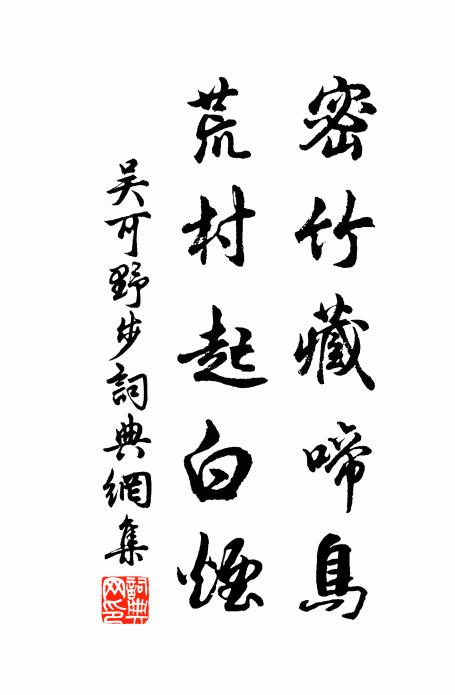 密竹藏啼鳥
荒村起白煙
吴可野步詞典網集
詞典網印